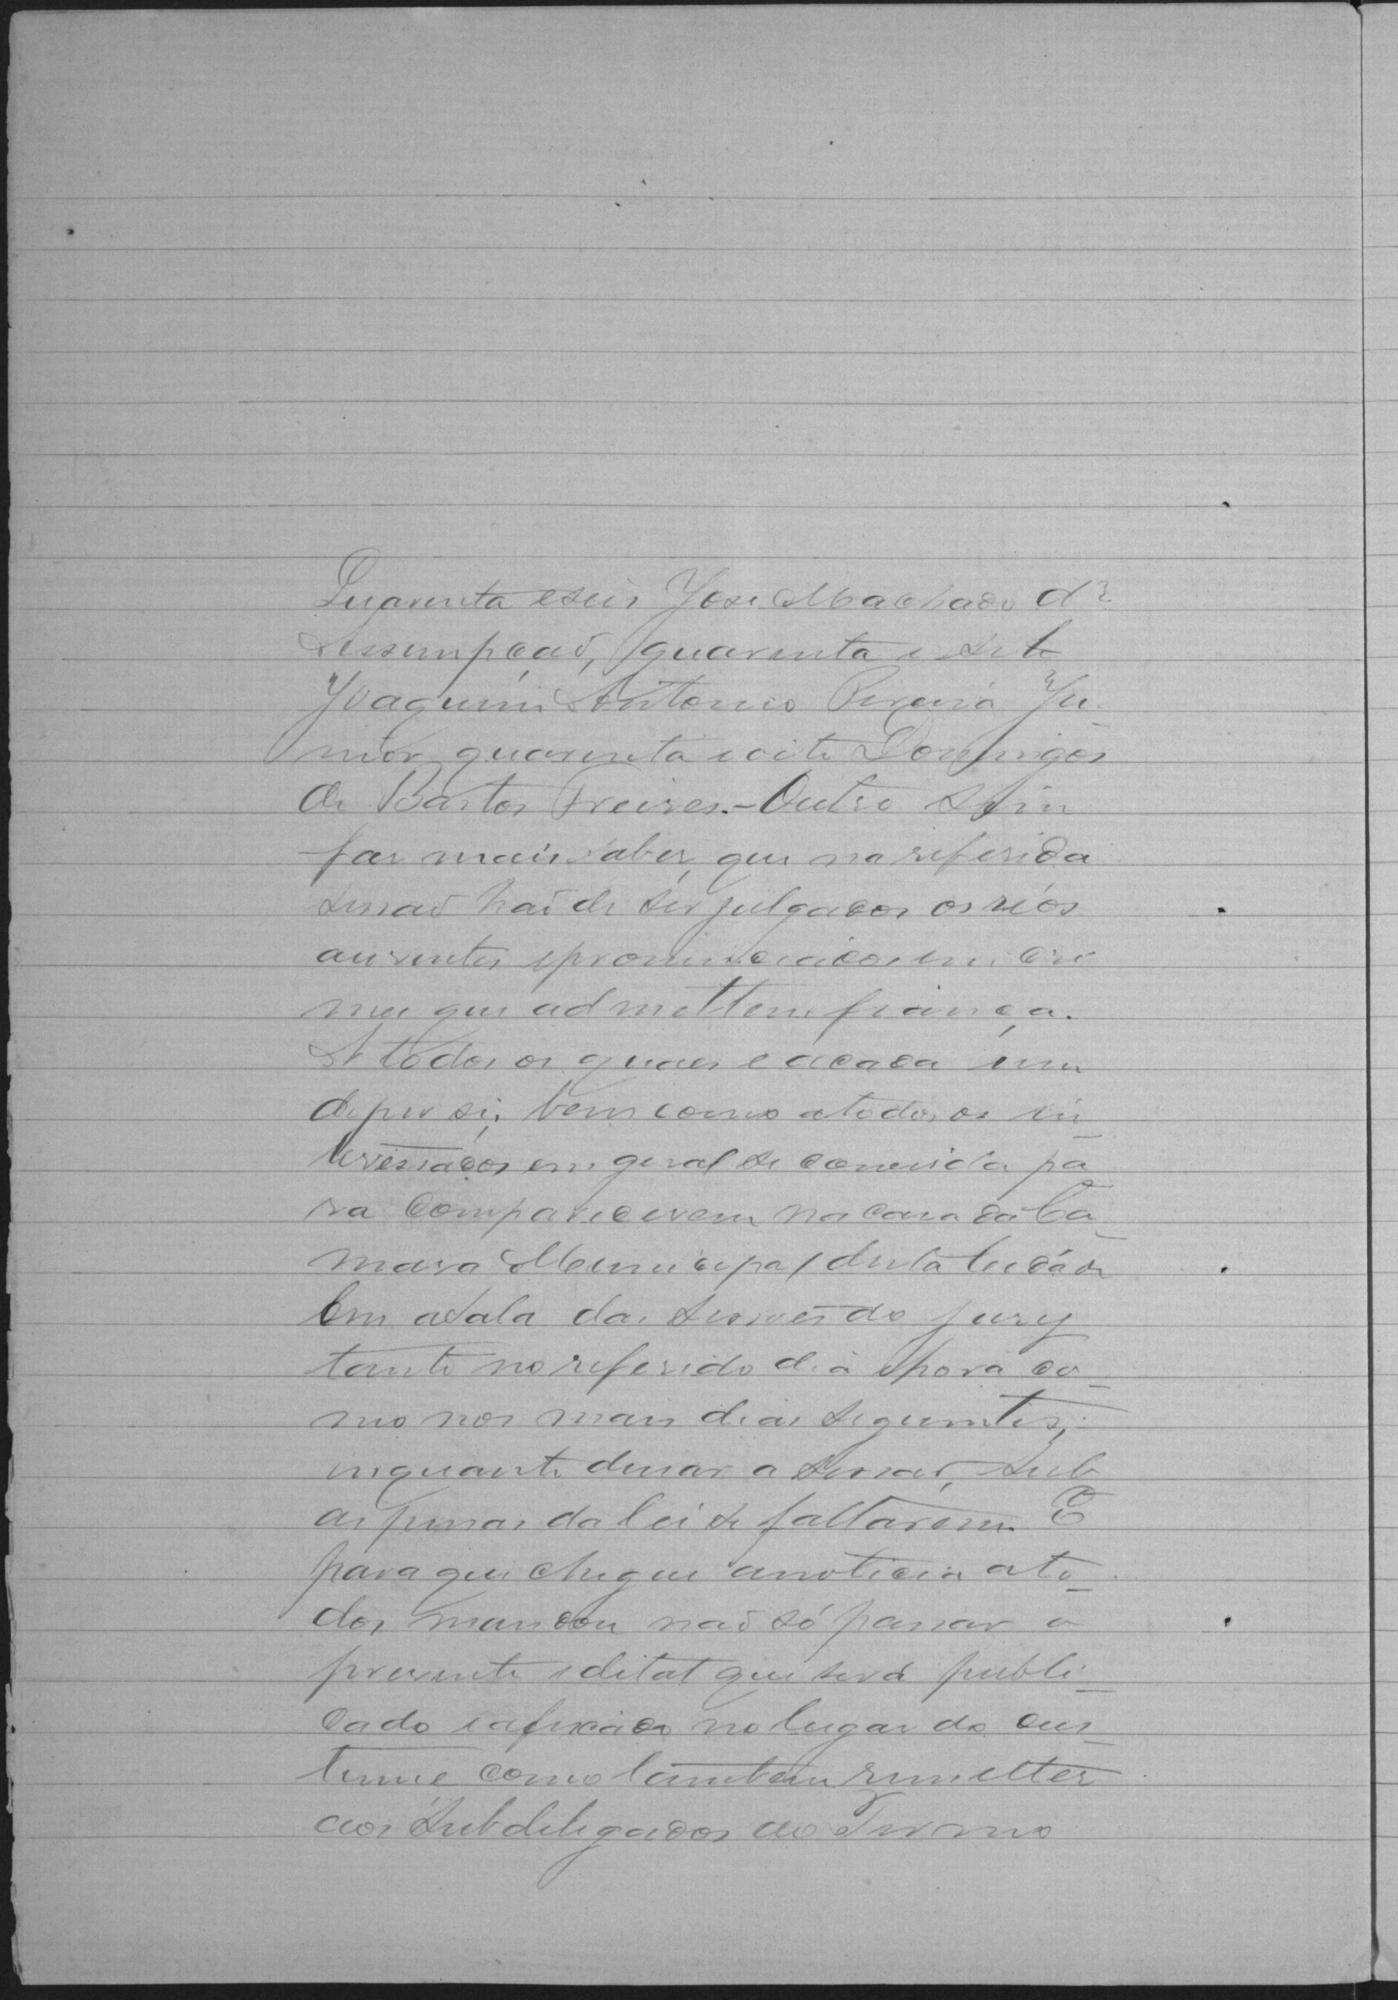 Quarenta e seis José Machado d'
Assumpção, quarenta e sete
Joaquim Antonio Pereira Ju-
nior, quarenta e oito Domingos
de Bastos Freires.- Outro Sim
faz mais saber, que na referida
sessaõ haõ de ser julgados os réos
ausentes e pronunciados em cri
mes que admittem fiança.
A todos os quaes e a cada um
de per si, bem como a todos os in
teressados em geral se convida pa
ra comparecerem na casa da Ca-
mara Municipal desta Cidade
Em a Sala das sessões do jury
tanto no referido dia e hora co-
mo nos mais dias seguintes,
enquanto durar a sessaõ, sub
as penas da lei se faltarem. E
para que chegue a noticia a to-
dos, mandou naõ só passar o
presente edital que será publi-
cado e afixado no lugar do cus-
tume como tambem remetter
aos Subdelegados do Termo